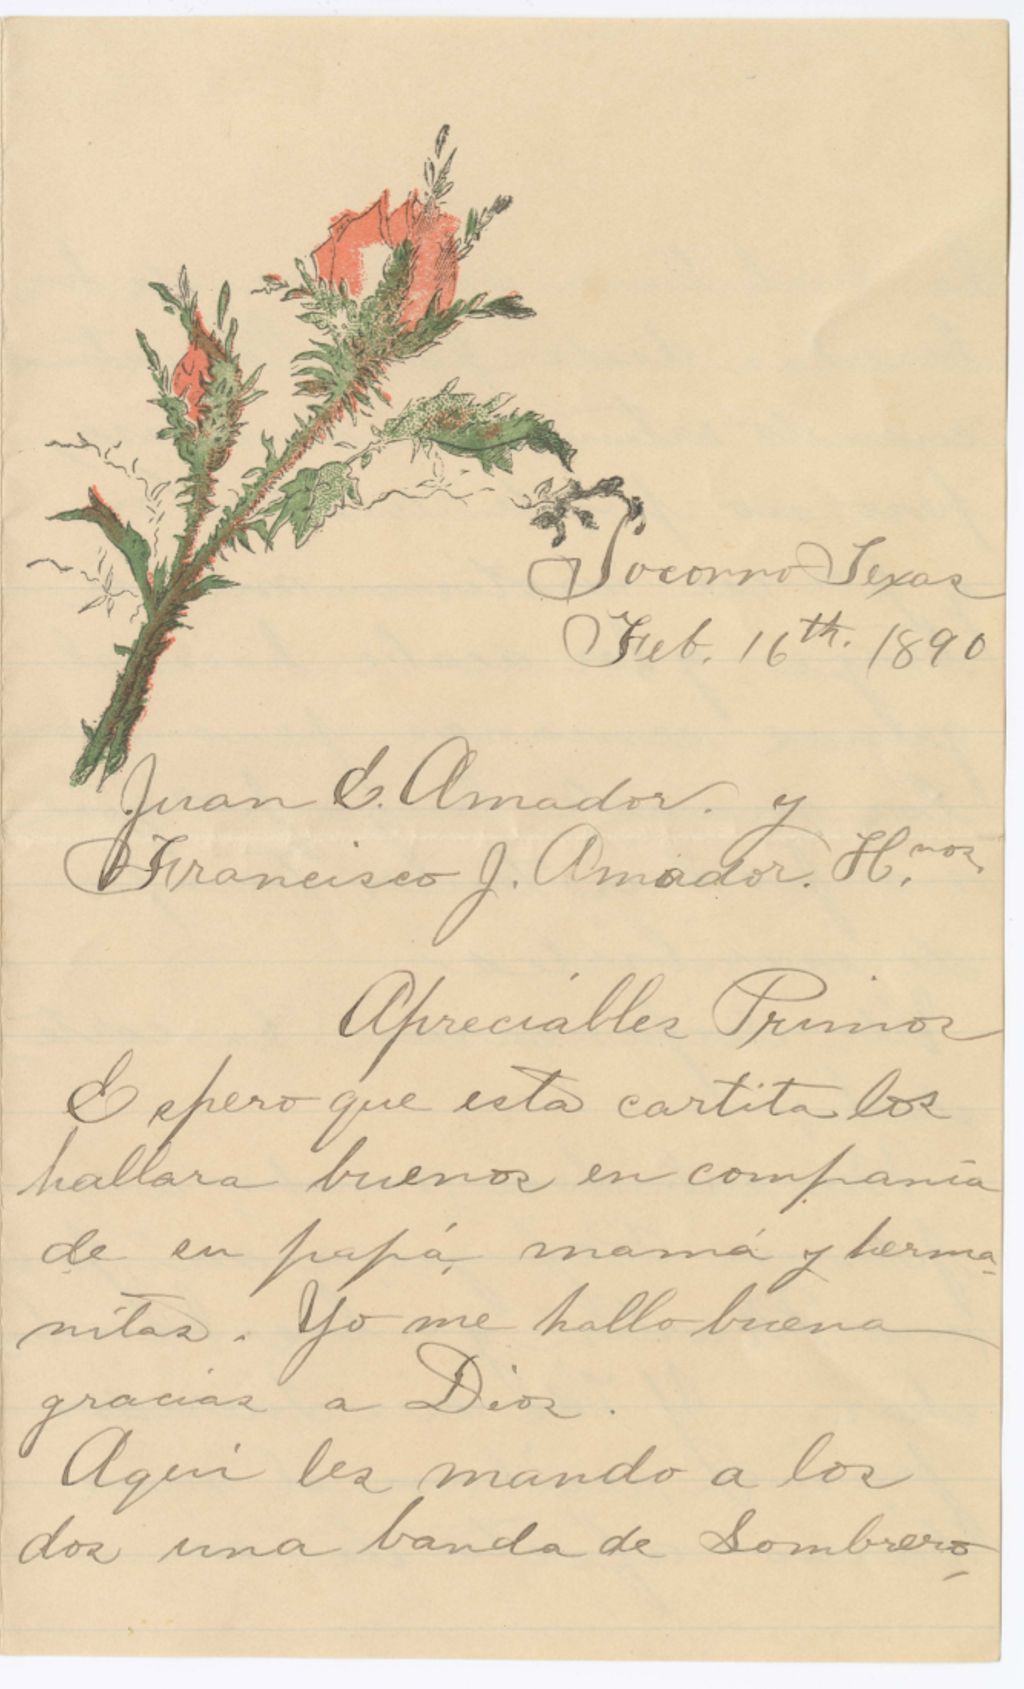 Socorro Texas
Feb. 16th. 1890
Juan E. Amador. y
Francisco J. Amador. H.nos.
Apreciables Primos
Espero que esta cartita los
hallara buenos en compania
de su papá, mamá y herma-
nitas. Yo me hallo buena
gracias a Dios.
Aqui les mando a los
dos una banda de Sombrero